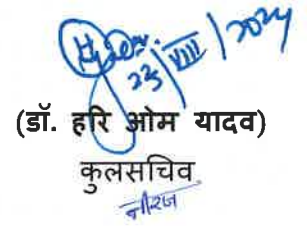 23/VIII/2024
(डॉ. हरि ओम यादव)
कुलसचिव
नीरज